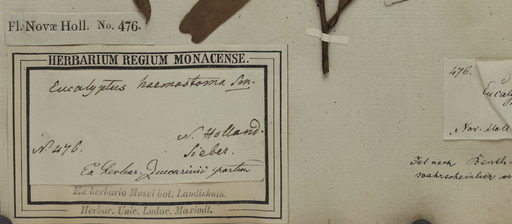 Fl. Novæ Holl. No. 476.
HERBARIUM REGIUM MONACENSE.
Eucalyptus haemastoma Sm.
N. Holland.
N. 476.
Sieber.
Ex herbar. Zuccarinii partim
Ex herbario Musei bot. Landishutn.
Herbar. Univ. Ludov. Maximil.
476.
Eucaly
Nov. Holl
Ist nach Benth.
wahrscheinlich